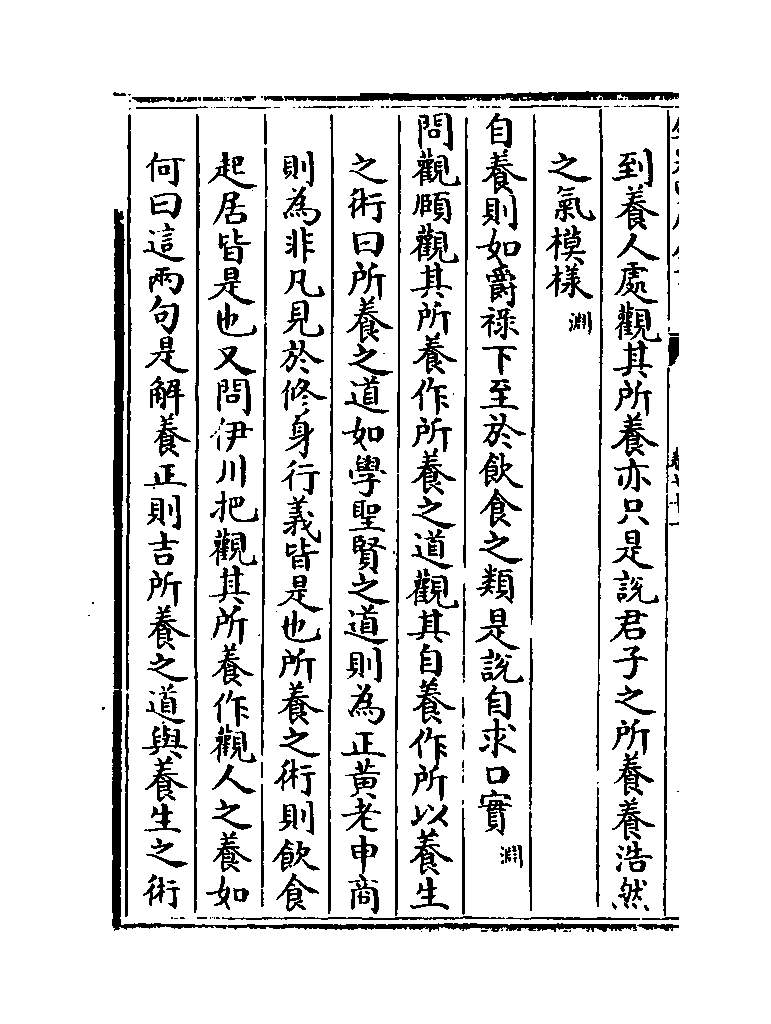 到養人處觀其所養亦只是說君子之所養養浩然
之氣模樣 淵
自養則如爵祿下至於飲食之類是說自求口實 淵
問觀頤觀其所養作所養之道觀其自養作所以養生
之術曰所養之道如學聖賢之道則為正黃老申商
則為非凡見於修身行義皆是也所養之術則飲食
起居皆是也又問伊川把觀其所養作觀人之養如
何曰這兩句是解養正則吉所養之道與養生之術